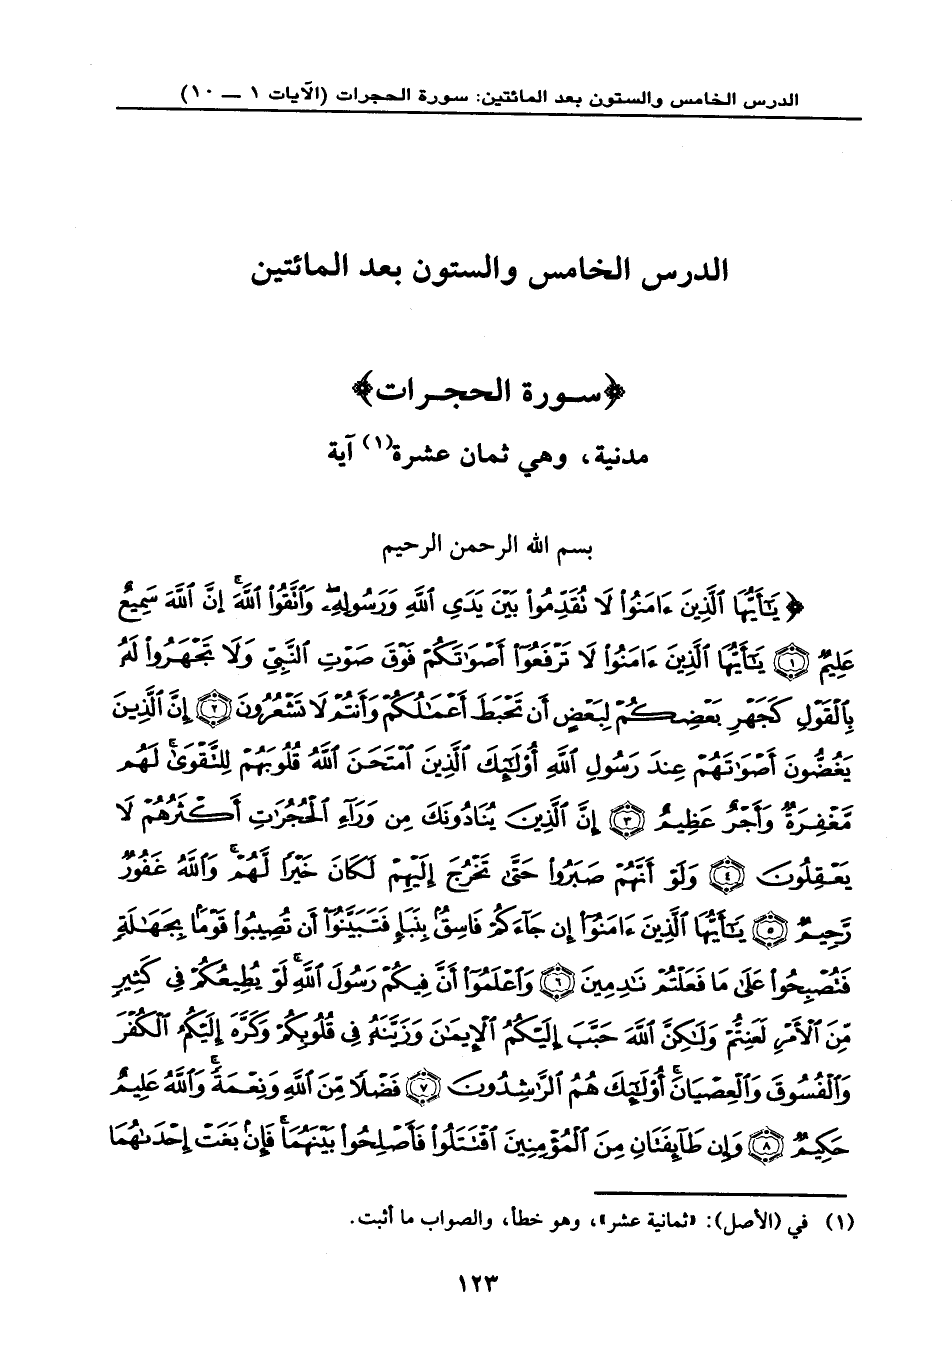 الدرس الخامس والستون بعد المائتين: سورة الحجرات (الآيات ١ — ١٠)
الدرس الخامس والستون بعد المائتين
﴿سورة الحجرات﴾
مدنية، وهي ثمان عشرة(١) آية
بسم الله الرحمن الرحيم
﴿يَٰٓأَيُّهَا ٱلَّذِينَ ءَامَنُوا۟ لَا تُقَدِّمُوا۟ بَيْنَ يَدَىِ ٱللَّهِ وَرَسُولِهِۦۖ وَٱتَّقُوا۟ ٱللَّهَۚ إِنَّ ٱللَّهَ سَمِيعٌ
عَلِيمٌ ١ يَٰٓأَيُّهَا ٱلَّذِينَ ءَامَنُوا۟ لَا تَرْفَعُوٓا۟ أَصْوَٰتَكُمْ فَوْقَ صَوْتِ ٱلنَّبِىِّ وَلَا تَجْهَرُوا۟ لَهُۥ
بِٱلْقَوْلِ كَجَهْرِ بَعْضِكُمْ لِبَعْضٍ أَن تَحْبَطَ أَعْمَٰلُكُمْ وَأَنتُمْ لَا تَشْعُرُونَ ٢ إِنَّ ٱلَّذِينَ
يَغُضُّونَ أَصْوَٰتَهُمْ عِندَ رَسُولِ ٱللَّهِ أُو۟لَٰٓئِكَ ٱلَّذِينَ ٱمْتَحَنَ ٱللَّهُ قُلُوبَهُمْ لِلتَّقْوَىٰۚ لَهُم
مَّغْفِرَةٌ وَأَجْرٌ عَظِيمٌ ٣ إِنَّ ٱلَّذِينَ يُنَادُونَكَ مِن وَرَآءِ ٱلْحُجُرَٰتِ أَكْثَرُهُمْ لَا
يَعْقِلُونَ ٤ وَلَوْ أَنَّهُمْ صَبَرُوا۟ حَتَّىٰ تَخْرُجَ إِلَيْهِمْ لَكَانَ خَيْرًا لَّهُمْۚ وَٱللَّهُ غَفُورٌ
رَّحِيمٌ ٥ يَٰٓأَيُّهَا ٱلَّذِينَ ءَامَنُوٓا۟ إِن جَآءَكُمْ فَاسِقٌۢ بِنَبَإٍ فَتَبَيَّنُوٓا۟ أَن تُصِيبُوا۟ قَوْمًۢا بِجَهَٰلَةٍ
فَتُصْبِحُوا۟ عَلَىٰ مَا فَعَلْتُمْ نَٰدِمِينَ ٦ وَٱعْلَمُوٓا۟ أَنَّ فِيكُمْ رَسُولَ ٱللَّهِۚ لَوْ يُطِيعُكُمْ فِى كَثِيرٍ
مِّنَ ٱلْأَمْرِ لَعَنِتُّمْ وَلَٰكِنَّ ٱللَّهَ حَبَّبَ إِلَيْكُمُ ٱلْإِيمَٰنَ وَزَيَّنَهُۥ فِى قُلُوبِكُمْ وَكَرَّهَ إِلَيْكُمُ ٱلْكُفْرَ
وَٱلْفُسُوقَ وَٱلْعِصْيَانَۚ أُو۟لَٰٓئِكَ هُمُ ٱلرَّٰشِدُونَ ٧ فَضْلًا مِّنَ ٱللَّهِ وَنِعْمَةًۚ وَٱللَّهُ عَلِيمٌ
حَكِيمٌ ٨ وَإِن طَآئِفَتَانِ مِنَ ٱلْمُؤْمِنِينَ ٱقْتَتَلُوا۟ فَأَصْلِحُوا۟ بَيْنَهُمَاۖ فَإِنۢ بَغَتْ إِحْدَىٰهُمَا
(١) في (الأصل): «ثمانية عشر»، وهو خطأ، والصواب ما أثبت.
١٢٣